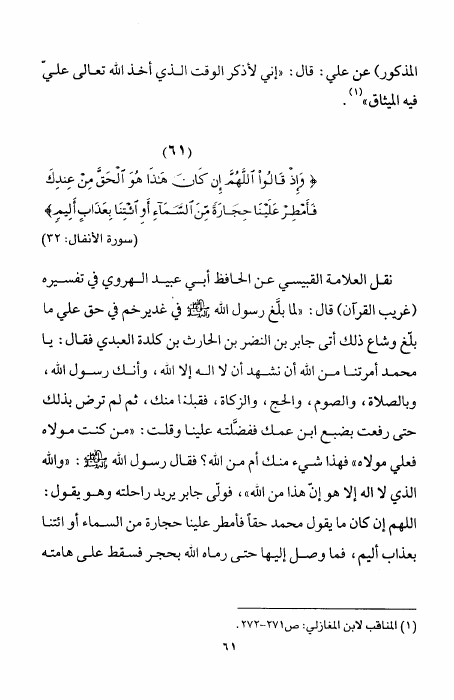 المذكور) عن علي: قال: «إني لأذكر الوقت الذي أخذ الله تعالى عليّ
فيه الميثاق»(١).
(٦١)
﴿ وَإِذْ قَالُواْ اَللَّهُمَّ إِن كَانَ هَٰذَا هُوَ اَلْحَقَّ مِنْ عِندِكَ
فَأَمْطِرْ عَلَيْنَا حِجَارَةً مِّنَ اَلسَّمَآءِ أَوِ ائْتِنَا بِعَذَابٍ أَلِيمٍ ﴾
(سورة الأنفال: ٣٢)
نقل العلامة القبيسي عن الحافظ أبي عبيد الهروي في تفسيره
(غريب القرآن) قال: «لما بلَّغ رسول الله ﷺ في غدير خم في حق علي ما
بلّغ وشاع ذلك أتى جابر بن النضر بن الحارث بن كلدة العبدي فقال: يا
محمد أمرتنا من الله أن نشهد أن لا اله إلا الله، وأنك رسول الله،
وبالصلاة، والصوم، والحج، والزكاة، فقبلنا منك، ثم لم ترض بذلك
حتى رفعت بضبع ابن عمك ففضَّلته علينا وقلت: «من كنت مولاه
فعلي مولاه» فهذا شيء منك أم من الله؟ فقال رسول الله ﷺ: «والله
الذي لا اله إلا هو إنّ هذا من الله»، فولّى جابر يريد راحلته وهو يقول:
اللهم إن كان ما يقول محمد حقاً فأمطر علينا حجارة من السماء أو ائتنا
بعذاب أليم، فما وصل إليها حتى رماه الله بحجر فسقط على هامته
(١) المناقب لابن المغازلي: ص٢٧١-٢٧٢.
٦١